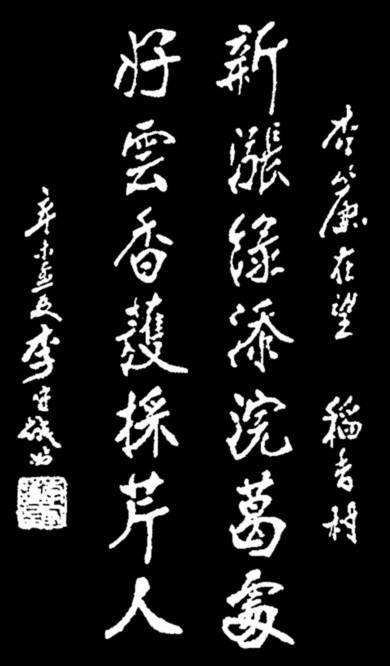 杏簾在望　稻香村
新漲綠添浣葛處
好雲香護採芹人
辛未孟夏李守